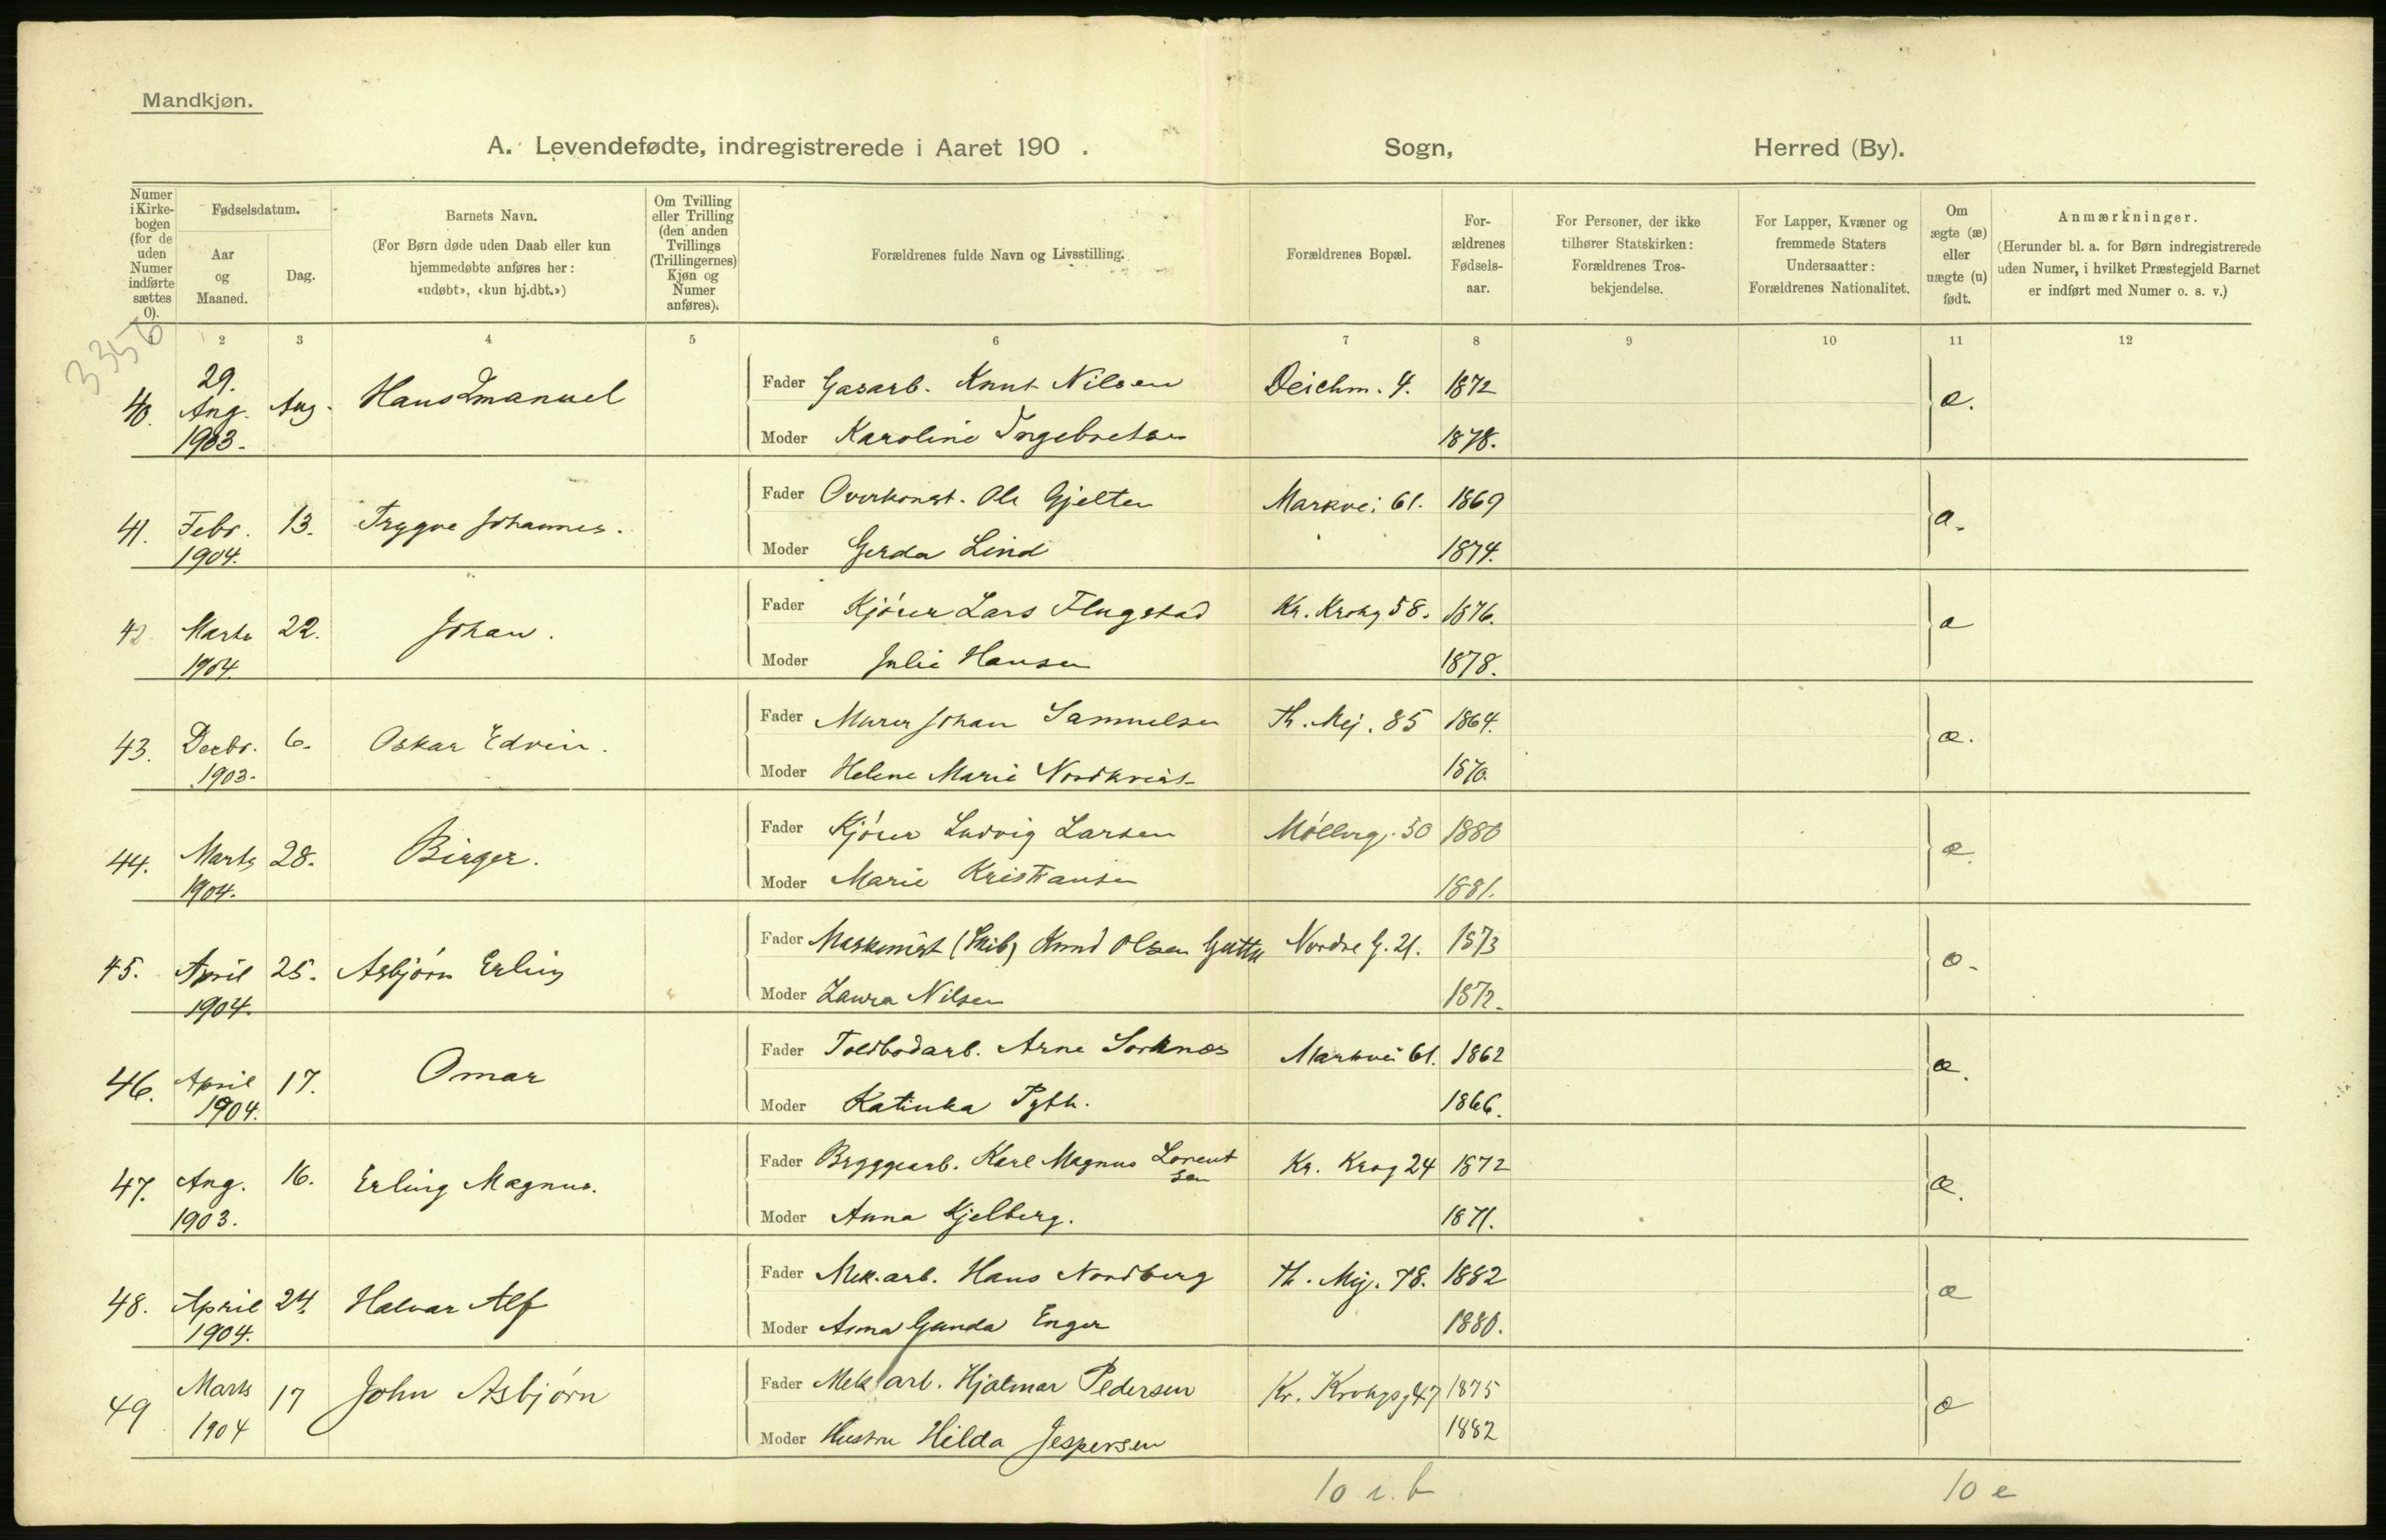 Mandkjøn.
A. Levendefødte, indregistrerede i Aaret 190 . Sogn, Herred (By).
Numer i Kirkebogen (for de uden Numer indførte sættes 0).
Fødselsdatum.
Aar og Maaned.
Dag.
Barnets Navn.
(For Børn døde uden Daab eller kun hjemmedøbte anføres her: «udøbt», «kun hj.dbt.»)
Om Tvilling eller Trilling (den anden Tvillings (Trillingernes) Kjøn og Numer anføres).
Forældrenes fulde Navn og Livsstilling.
Forældrenes Bopæl.
Forældrenes Fødselsaar.
For Personer, der ikke tilhører Statskirken: Forældrenes Trosbekjendelse.
For Lapper, Kvæner og fremmede Staters Undersaatter: Forældrenes Nationalitet.
Om ægte (æ) eller uægte (u) født.
Anmærkninger.
(Herunder bl. a. for Børn indregistrerede uden Numer, i hvilket Præstegjeld Barnet er indført med Numer o. s. v.)
3356
2 3 4 5 6 7 8 9 10 11 12
40. 29. Aug. 1903. Aug. Hans Imanuel Fader Gasarb. Knut Nilsen Deichm. 4. 1872 æ.
Moder Karoline Ingebretsen 1878.
41. Febr. 1904. 13. Trygve Johannes. Fader Overkonst. Ole Gjelten Markvei 61. 1869 æ.
Moder Gerda Lind 1874.
42 Marts 1904. 22. Johan. Fader Kjører Lars Flugstad Kr. Krohg 58. 1876. æ
Moder Julie Hansen 1878.
43. Decbr. 1903. 6. Oskar Edvin. Fader Murer Johan Samuelsen Th. Mej. 85 1864. æ.
Moder Helene Marie Nordkvist 1870.
44. Marts 1904. 28. Birger. Fader Kjører Ludvig Larsen Møllerg. 50 1880 æ.
Moder Marie Kristiansen 1881.
45. April 1904. 25. Asbjørn Erling Fader Maskinist (Skib) Knud Olsen Nordre G. 21. 1873 æ.
Moder Laura Nilsen 1872.
46. April 1904. 17. Omar Fader Toldbodarb. Arne Sorknæs Markvei 61. 1862 æ.
Moder Katinka Pyth. 1866.
47. Aug. 1903. 16. Erling Magnus. Fader Bryggearb. Karl Magnus Lorentsen Kr. Krog 24 1872 æ.
Moder Anna Kjelberg. 1871.
48. April 1904. 24. Halvar Alf Fader Mek. arb. Hans Nordberg Th. Mej. 78. 1882 æ
Moder Anna Gunda Enger 1880.
49 Marts 1904 17 John Asbjørn Fader Mek arb. Hjalmar Pedersen Kr. Krohgsg 47 1875 æ
Moder Hustru Hilda Jespersen 1882
10 i. b. 10 e